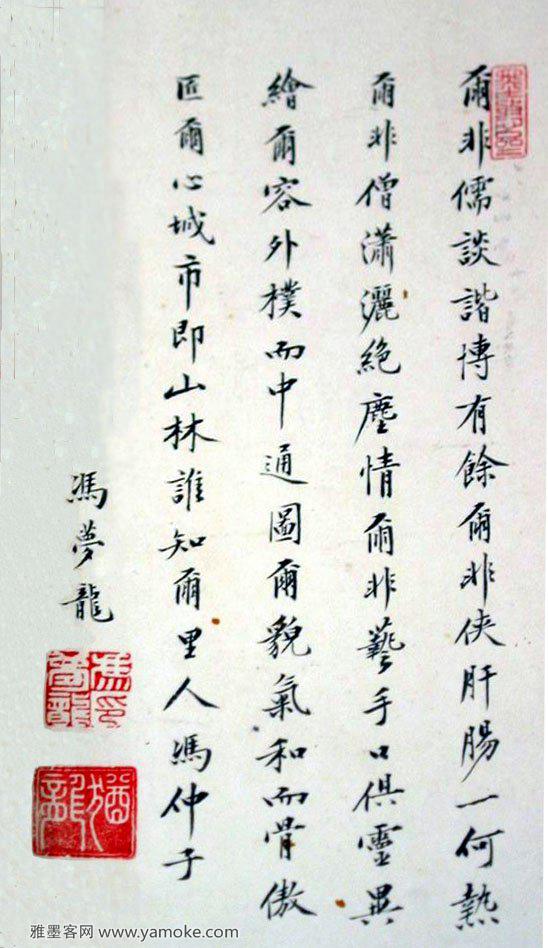 爾非儒談諧博有餘爾非俠肝腸一何熱
爾非僧瀟灑絕塵情爾非藝手口俱靈異
繪爾容外樸而中通圖爾貌氣和而骨傲
匝爾心城市即山林誰知爾里人馮仲子
馮夢龍
馮夢龍印
猶龍
雅墨客网 www.yamoke.com